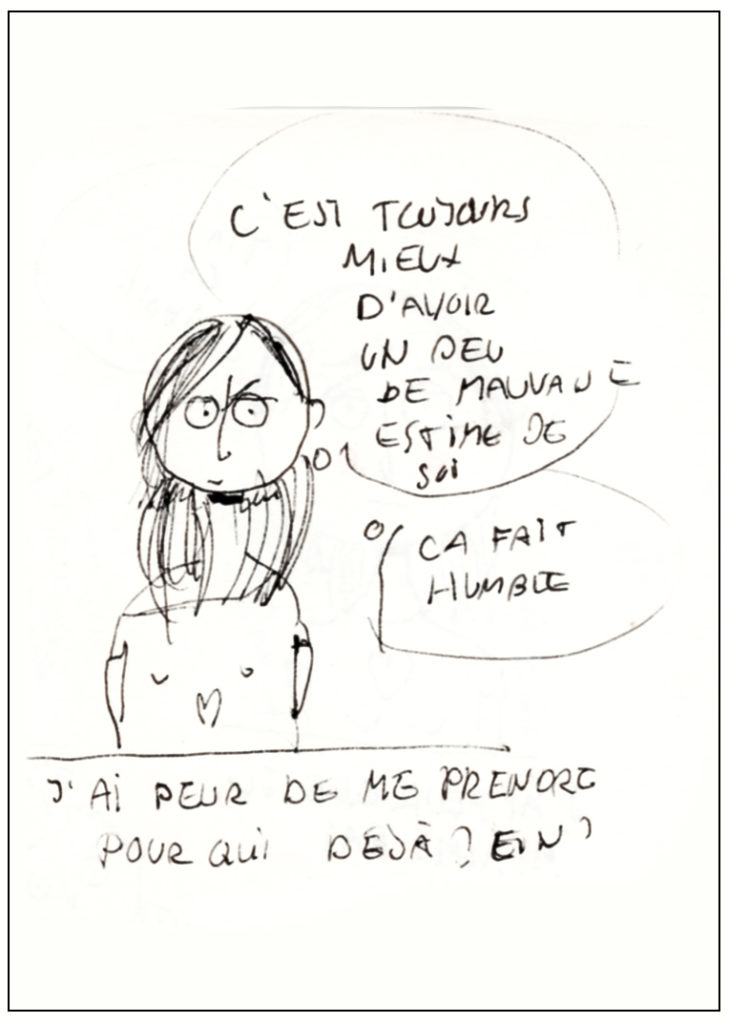 C'EST TOUJOURS
MIEUX
D'AVOIR
UN PEU
DE MAUVAISE
ESTIME DE
SOI
CA FAIT
HUMBLE
J'AI PEUR DE ME PRENDRE
POUR QUI DEJÀ? EIN?